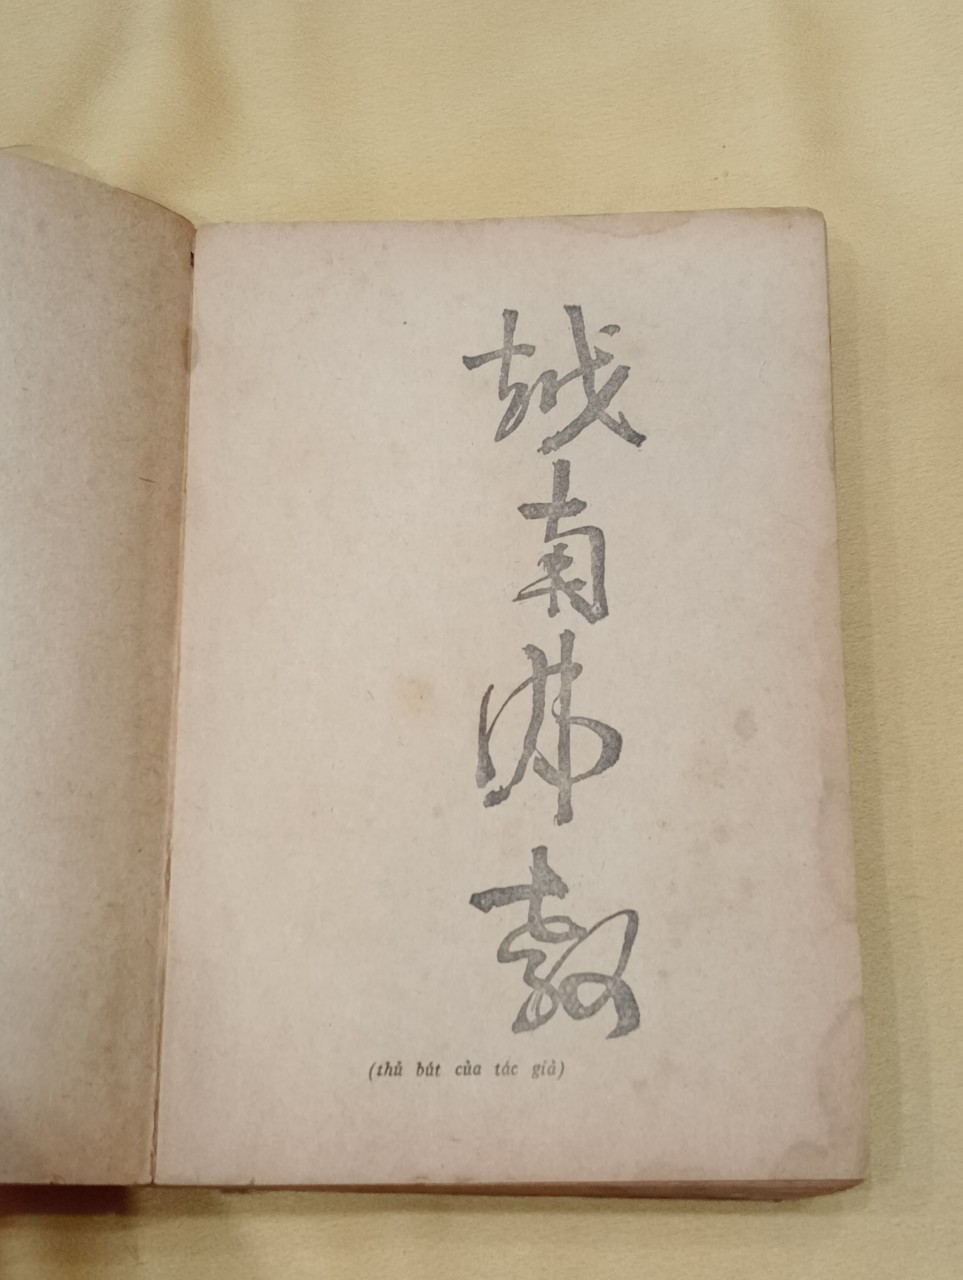 越南佛教
(thủ bút của tác giả)